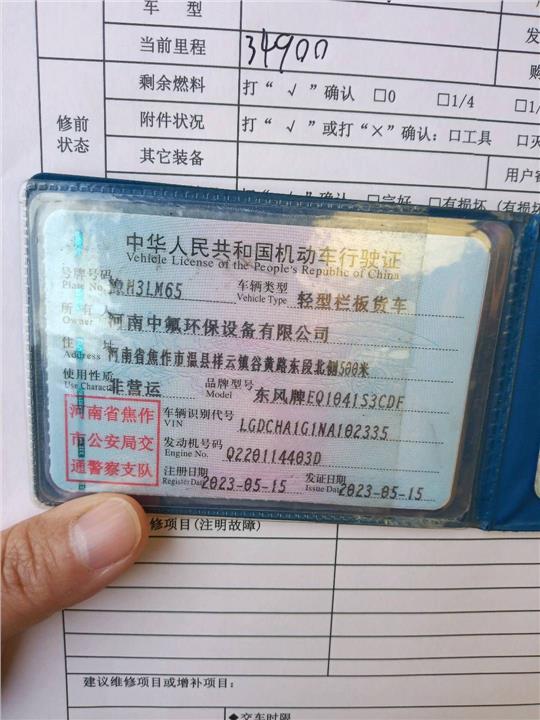 车 型
发
当前里程 34900
购
修前状态
剩余燃料 打“√”确认 □0 □1/4 □1/
附件状况 打“√”或打“×”确认：□工具 □灭
其它装备
用户
确认 □完好 □有损坏（有损坏
中华人民共和国机动车行驶证
Vehicle License of the People's Republic of China
号牌号码 H3LM65 车辆类型 轻型栏板货车
Plate No. Vehicle Type
所有人 河南中氟环保设备有限公司
Owner
住址 河南省焦作市温县祥云镇谷黄路东段北侧500米
Address
使用性质 非营运 品牌型号 东风牌EQ1041S3CDF
Use Character Model
河南省焦作
市公安局交
通警察支队
车辆识别代号 LGDCHA1G1NA102335
VIN
发动机号码 Q220114403D
Engine No.
注册日期 2023-05-15 发证日期 2023-05-15
Register Date Issue Date
修项目(注明故障)
建议维修项目或增补项目：
◆交车时限